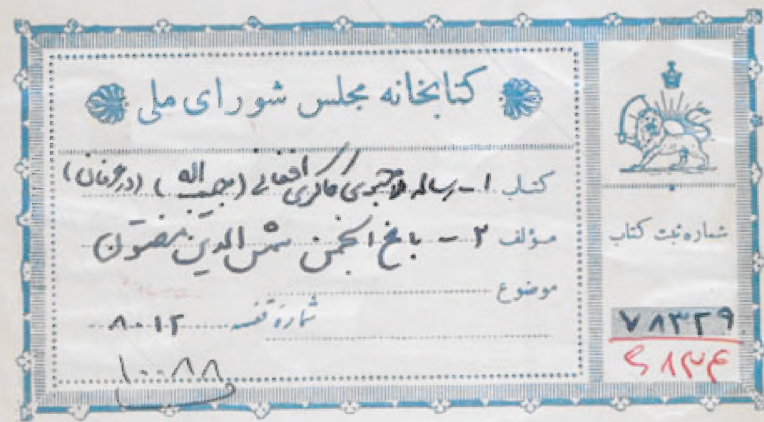 کتابخانه مجلس شورای ملی
کتاب ۱ - رساله کاکری افغانی (مجیب اله) (در عرفان)
مؤلف ۲ - باغ انجمن شمس الدین مفتون
موضوع
شماره قفسه ۸۰۱۲
۱۰۰۸۸
شماره ثبت کتاب
۷۸۳۲۹